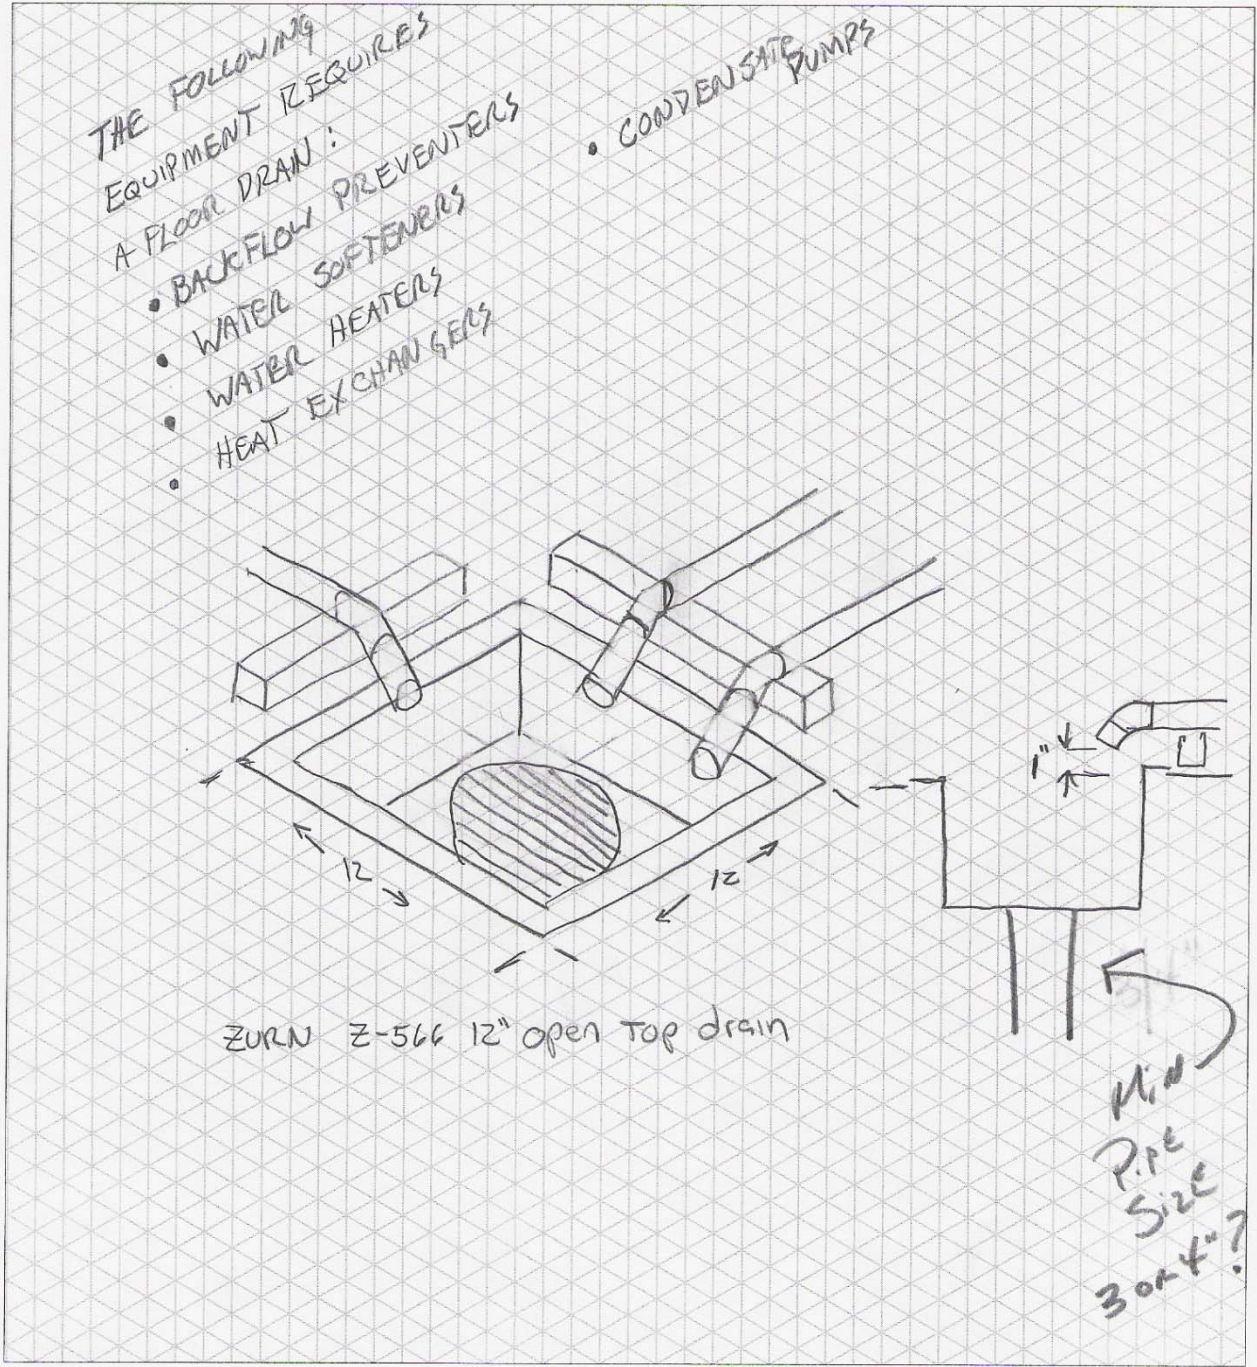 THE FOLLOWING
EQUIPMENT REQUIRES
A FLOOR DRAIN:
• BACKFLOW PREVENTERS
• WATER SOFTENERS
• WATER HEATERS
• HEAT EXCHANGERS
• CONDENSATE
PUMPS
1"
12
12
ZURN Z-566 12" open Top drain
Min
Pipe
Size
3 or 4"?